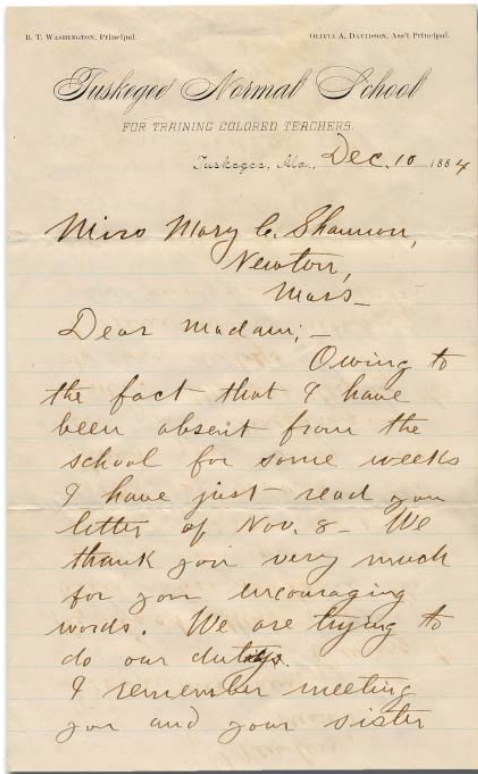 B. T. WASHINGTON, Principal. OLIVIA A. DAVIDSON, Ass't Principal.
Tuskegee Normal School
FOR TRAINING COLORED TEACHERS.
Tuskegee, Ala., Dec. 10 1884
Miss Mary C. Shannon,
Newton,
Mass–
Dear Madam; –
Owing to
the fact that I have
been absent from the
school for some weeks
I have just read you
letter of Nov. 8 – We
thank you very much
for your encouraging
words. We are trying to
do our duty.
I remember meeting
you and your sister